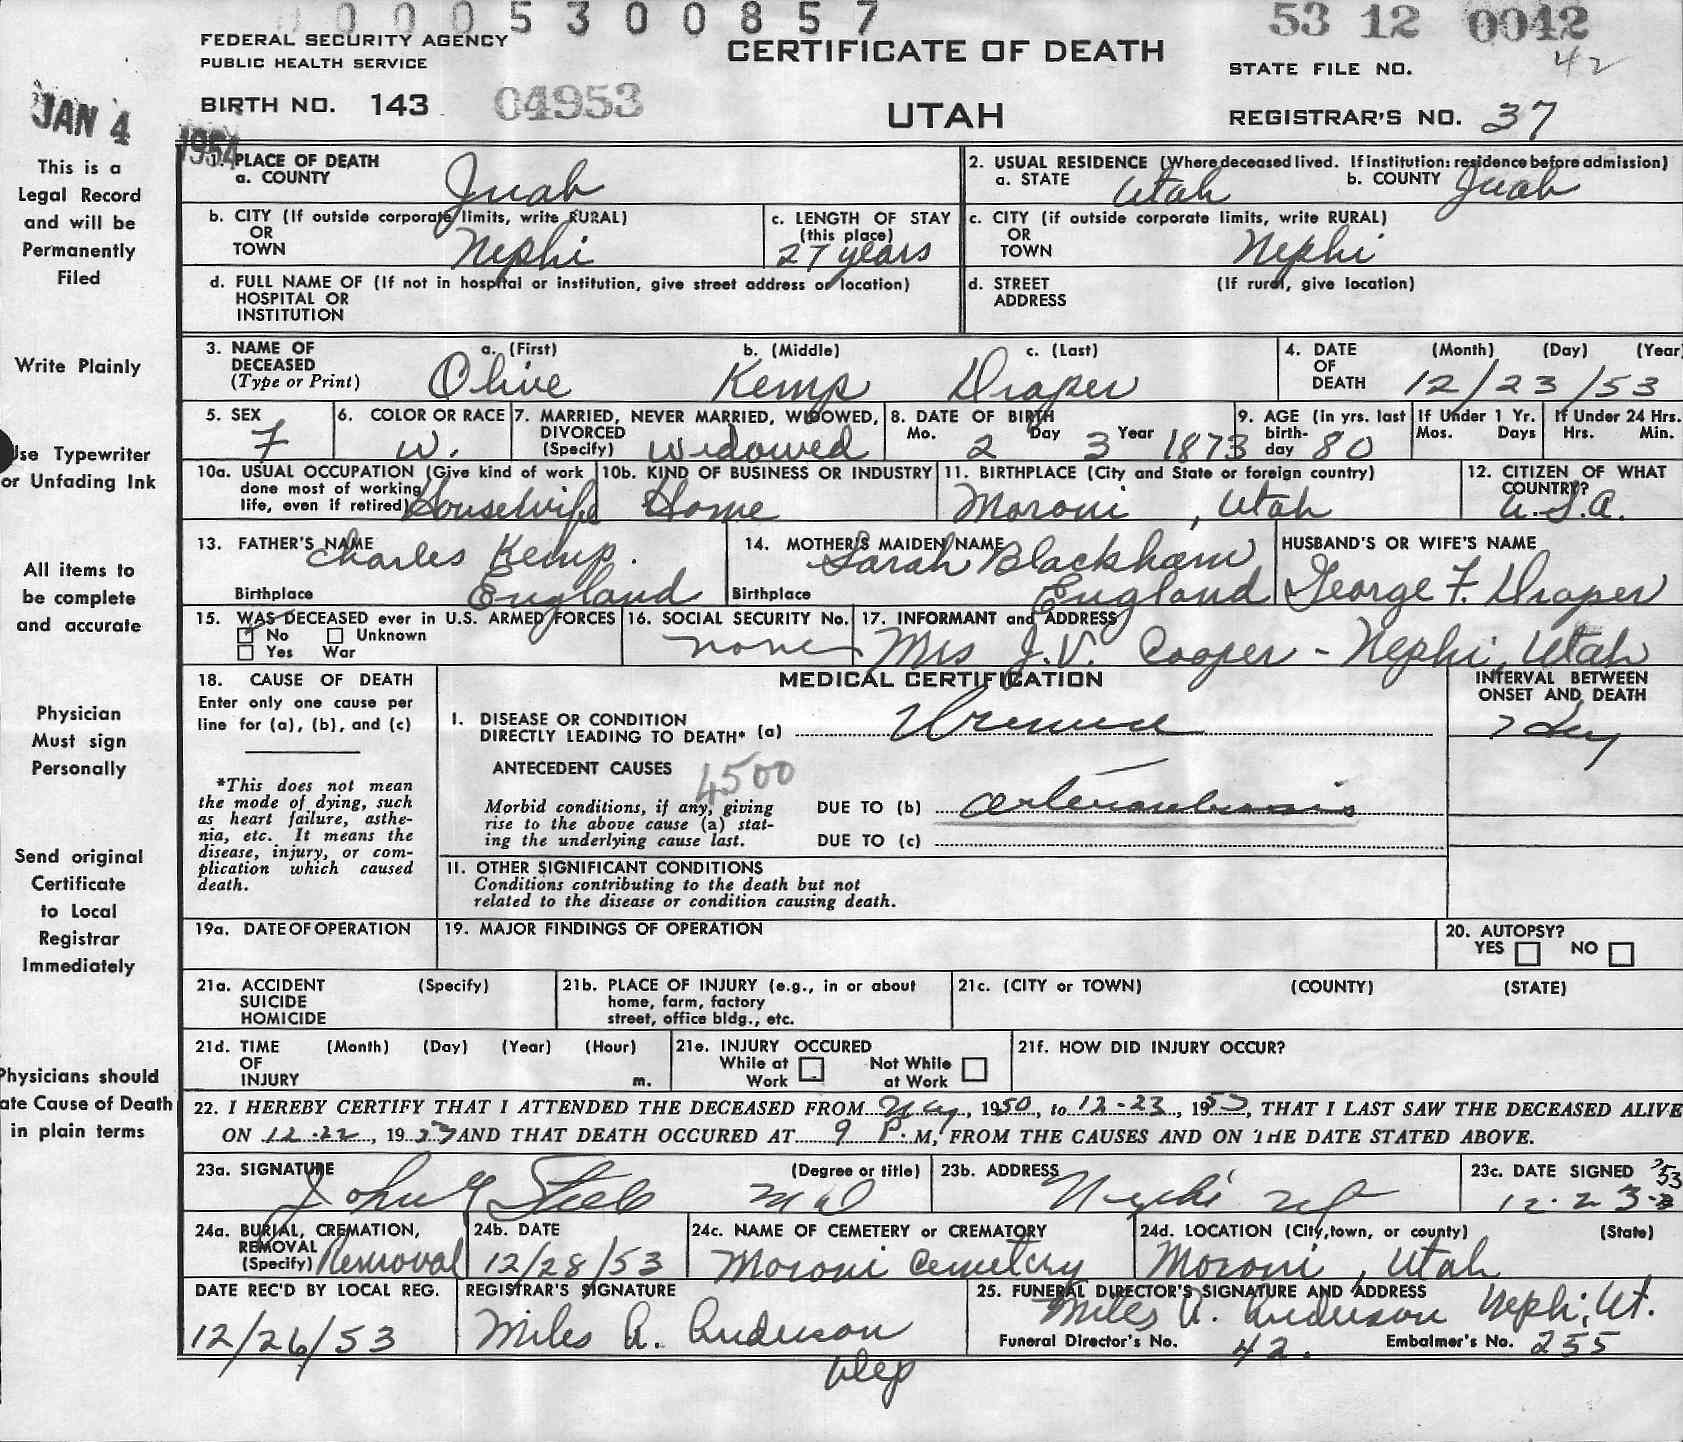 0 0 0 0 5 3 0 0 8 5 7
53 12 0042
42
FEDERAL SECURITY AGENCY
PUBLIC HEALTH SERVICE
CERTIFICATE OF DEATH
STATE FILE NO.
BIRTH NO. 143 04953
UTAH
REGISTRAR'S NO. 37
JAN 4
1954
This is a
Legal Record
and will be
Permanently
Filed
Write Plainly
Use Typewriter
or Unfading Ink
All items to
be complete
and accurate
Physician
Must sign
Personally
Send original
Certificate
to Local
Registrar
Immediately
Physicians should
ate Cause of Death
in plain terms
1. PLACE OF DEATH
a. COUNTY Juab
2. USUAL RESIDENCE (Where deceased lived. If institution: residence before admission)
a. STATE Utah b. COUNTY Juab
b. CITY (If outside corporate limits, write RURAL)
OR
TOWN Nephi
c. LENGTH OF STAY
(this place)
27 years
c. CITY (if outside corporate limits, write RURAL)
OR
TOWN Nephi
d. FULL NAME OF (If not in hospital or institution, give street address or location)
HOSPITAL OR
INSTITUTION
d. STREET (If rural, give location)
ADDRESS
3. NAME OF DECEASED (Type or Print)
a. (First) b. (Middle) c. (Last)
Olive Kemp Draper
4. DATE OF DEATH (Month) (Day) (Year)
12/23/53
5. SEX F
6. COLOR OR RACE W.
7. MARRIED, NEVER MARRIED, WIDOWED,
DIVORCED
(Specify) Widowed
8. DATE OF BIRTH
Mo. 2 Day 3 Year 1873
9. AGE (in yrs. last
birth-
day 80
If Under 1 Yr.
Mos. Days
If Under 24 Hrs.
Hrs. Min.
10a. USUAL OCCUPATION (Give kind of work
done most of working
life, even if retired) Housewife
10b. KIND OF BUSINESS OR INDUSTRY
Home
11. BIRTHPLACE (City and State or foreign country)
Moroni, Utah
12. CITIZEN OF WHAT
COUNTRY?
U.S.A.
13. FATHER'S NAME
Charles Kemp.
Birthplace England
14. MOTHER'S MAIDEN NAME
Sarah Blackham
Birthplace England
HUSBAND'S OR WIFE'S NAME
George F. Draper
15. WAS DECEASED ever in U.S. ARMED FORCES
No Unknown
Yes War
16. SOCIAL SECURITY No.
none
17. INFORMANT and ADDRESS
Mrs J.V. Cooper - Nephi, Utah
18. CAUSE OF DEATH
Enter only one cause per
line for (a), (b), and (c)
*This does not mean
the mode of dying, such
as heart failure, asthe-
nia, etc. It means the
disease, injury, or com-
plication which caused
death.
MEDICAL CERTIFICATION
INTERVAL BETWEEN
ONSET AND DEATH
I. DISEASE OR CONDITION
DIRECTLY LEADING TO DEATH* (a) Uremia
7 day
ANTECEDENT CAUSES 4500
Morbid conditions, if any, giving
rise to the above cause (a) stat-
ing the underlying cause last.
DUE TO (b)
DUE TO (c)
II. OTHER SIGNIFICANT CONDITIONS
Conditions contributing to the death but not
related to the disease or condition causing death.
19a. DATE OF OPERATION
19. MAJOR FINDINGS OF OPERATION
20. AUTOPSY?
YES NO
21a. ACCIDENT (Specify)
SUICIDE
HOMICIDE
21b. PLACE OF INJURY (e.g., in or about
home, farm, factory
street, office bldg., etc.
21c. (CITY or TOWN) (COUNTY) (STATE)
21d. TIME (Month) (Day) (Year) (Hour)
OF
INJURY m.
21e. INJURY OCCURED
While at Work Not While at Work
21f. HOW DID INJURY OCCUR?
22. I HEREBY CERTIFY THAT I ATTENDED THE DECEASED FROM May, 1950, to 12-23, 1953, THAT I LAST SAW THE DECEASED ALIVE
ON 12-22, 1953 AND THAT DEATH OCCURED AT 9 P.M, FROM THE CAUSES AND ON THE DATE STATED ABOVE.
23a. SIGNATURE (Degree or title)
John G Steele MD
23b. ADDRESS
Nephi Ut
23c. DATE SIGNED
12-23-53
24a. BURIAL, CREMATION,
REMOVAL
(Specify) Removal
24b. DATE
12/28/53
24c. NAME OF CEMETERY or CREMATORY
Moroni Cemetery
24d. LOCATION (City, town, or county) (State)
Moroni, Utah
DATE REC'D BY LOCAL REG.
12/26/53
REGISTRAR'S SIGNATURE
Miles A. Anderson
25. FUNERAL DIRECTOR'S SIGNATURE AND ADDRESS
Miles A. Anderson Nephi, Ut.
Funeral Director's No. 42. Embalmer's No. 255